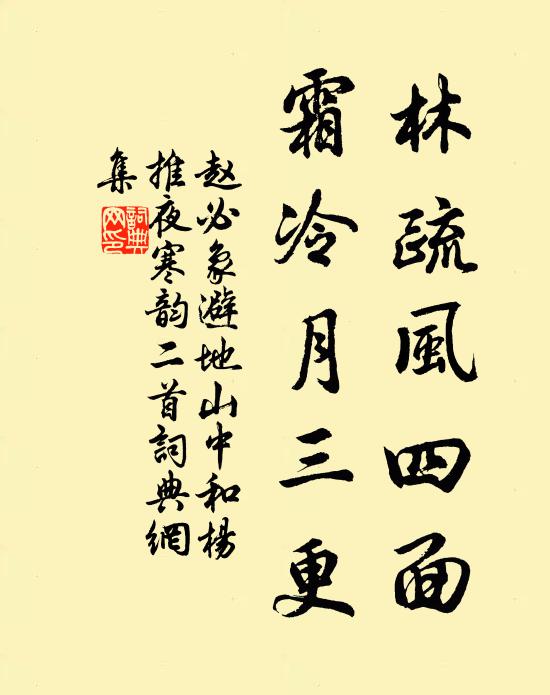 林疏風四面
霜冷月三更
赵必象避地山中和楊
推夜寒韵二首詞典網
集
詞典網印